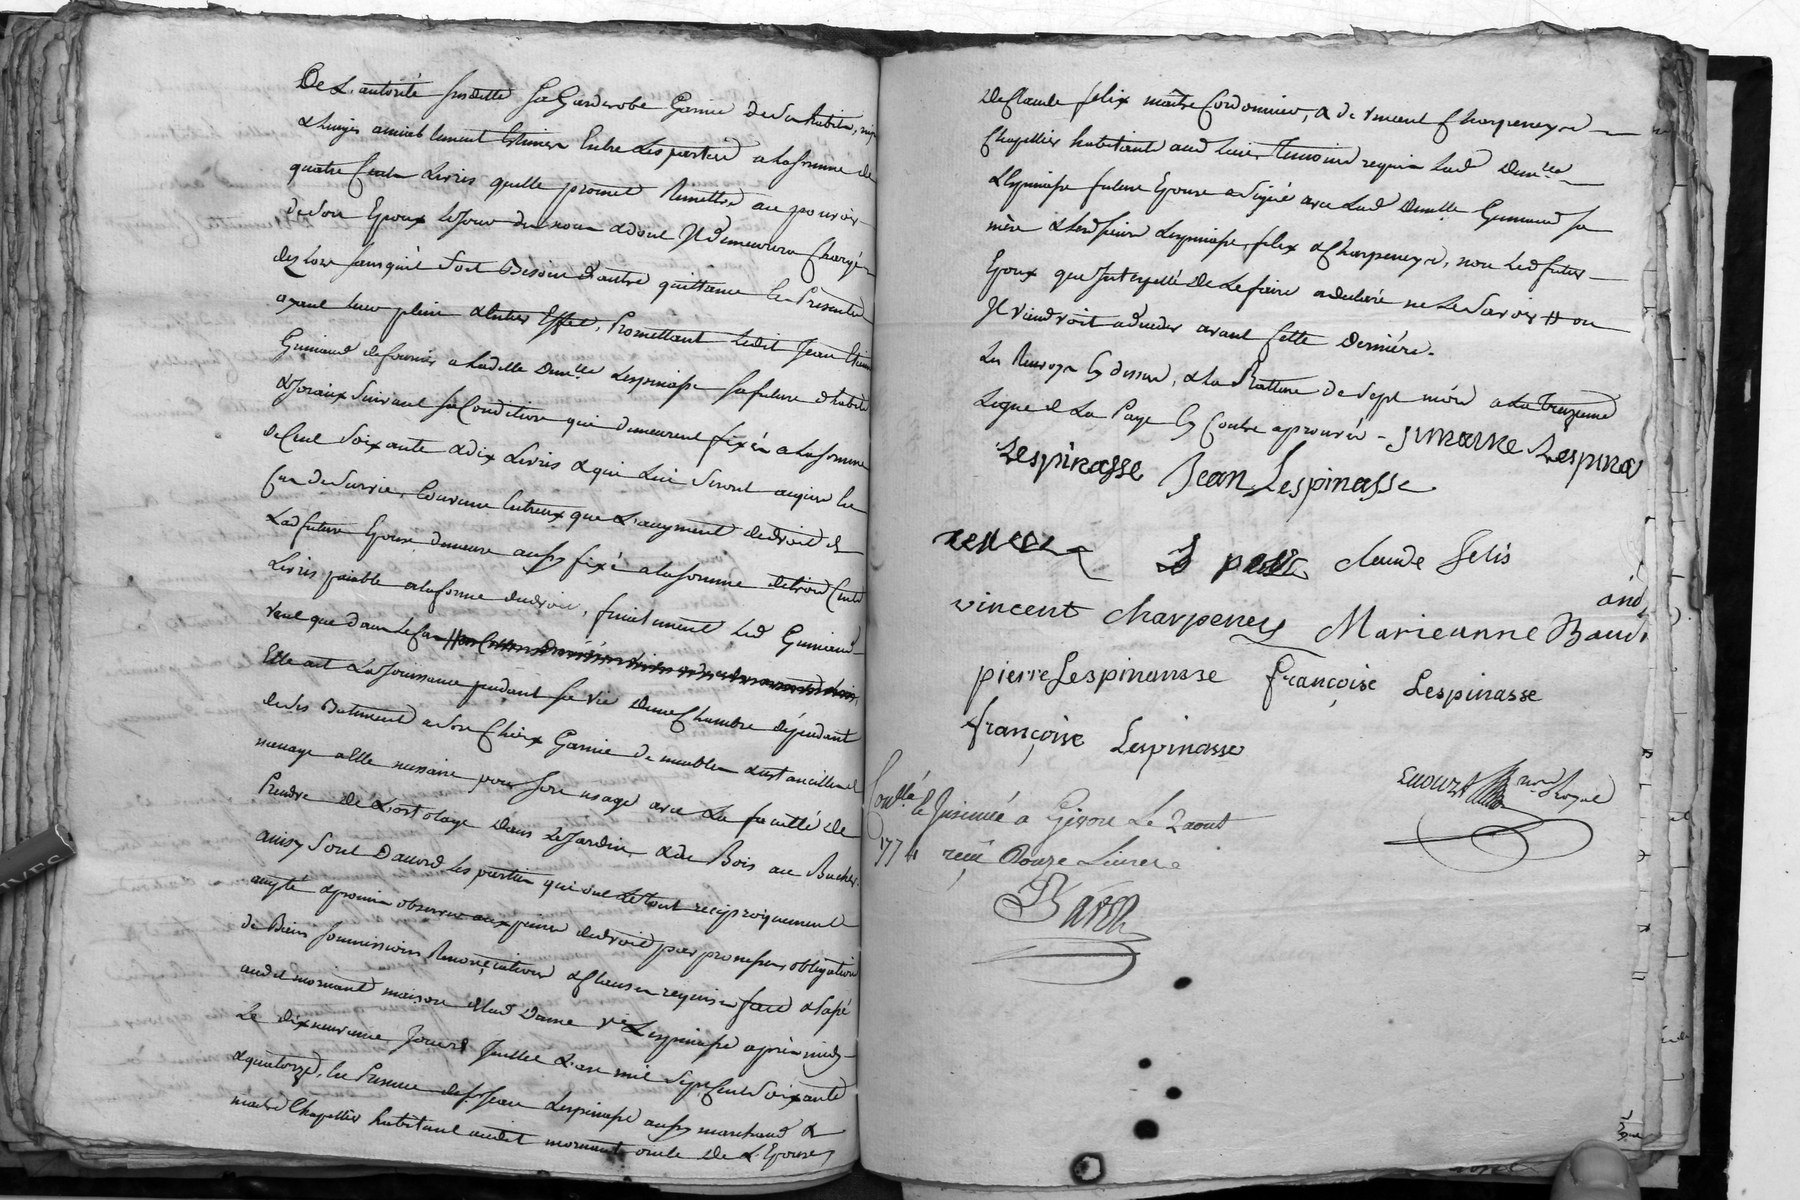 De L'autorité susditte sa Garderobe Garnie de ses habits,
& linges amiablement Estimer Entre Les parties a La somme de
quatre Cents Livres quelle promet Remettre au pouvoir
de son Epoux le Jour des nous adont Il demeurera Chargé
des Lors sans quil soit Besoin d'autre quittance Les Presentes
ayant leur plein & Entier Effet, Promettant Ledit Jean
Guinand de fournir a Ladtte Dem.lle Lespinasse sa future d'habits
& Joiaux suivant sa Condition qui demeurent fixés a La somme
de Cent soixante & dix Livres & qui Lui seront acquis En
Cas de survie, Convenu Entreux que L'augment de droit de
Lad future Epouse demeure aussy fixé a La somme de trois Cents
Livres paiable a la forme du droit, finalement Led Guinand
veut que dans Le Cas
Elle ait La Jouissance pendant sa vie D'une Chambre dépendant
de ses Batiments a son Choix Garnie de meubles & ustancilles de
menage a Elle nessaire pour son usage avec La faculté de
Prendre de L'ortolage Dans Le Jardin & du Bois au Bucher,
ainsy sont D'accord les parties qui ont Le tout reciproquement
accepté & promis observer aux peines de droit par promesses, obligation
de Biens soumissions Renonciations & Clauses requises fait & passé
aud Mornant maison de Lad Dame v.e Lespinasse après midy
Le dix neuvieme Jour de Juillet L'an mil sept Cent soixante
& quatorze, En Presence de s. Jean Lespinasse aussy marchand &
maitre Chapellier habitant audit mornant oncle de L'Epouse,
De Claude felix maitre Cordonnier, & de vincent Charpeney
Chapellier habitants aud Lieu, temoins requis Lad Dem.lle
Lespinasse future Epouse a signé avec Lad Demlle Guinand sa
mère & Lesd sieurs Lespinasse, felix & Charpeney, non Led futur
Epoux que Interpellé De Le faire a declaré ne Le savoir # ou
Il viendroit a deceder avant Cette Derniére.
Le Renvoy Cy dessus, & La Rature de sept mots a La treizieme
Ligne de La Page Cy Contre aprouvés - Jimarke Lespina
Lespinasse Jean Lespinasse
claude felis
vincent charpeney Marieanne Baud
pierre Lespinanasse françoise Lespinasse
françoise Lespinasse
not. Royal
Conllé & Insinué a Givors Le 2 aout
1774 reçu Douze Livres